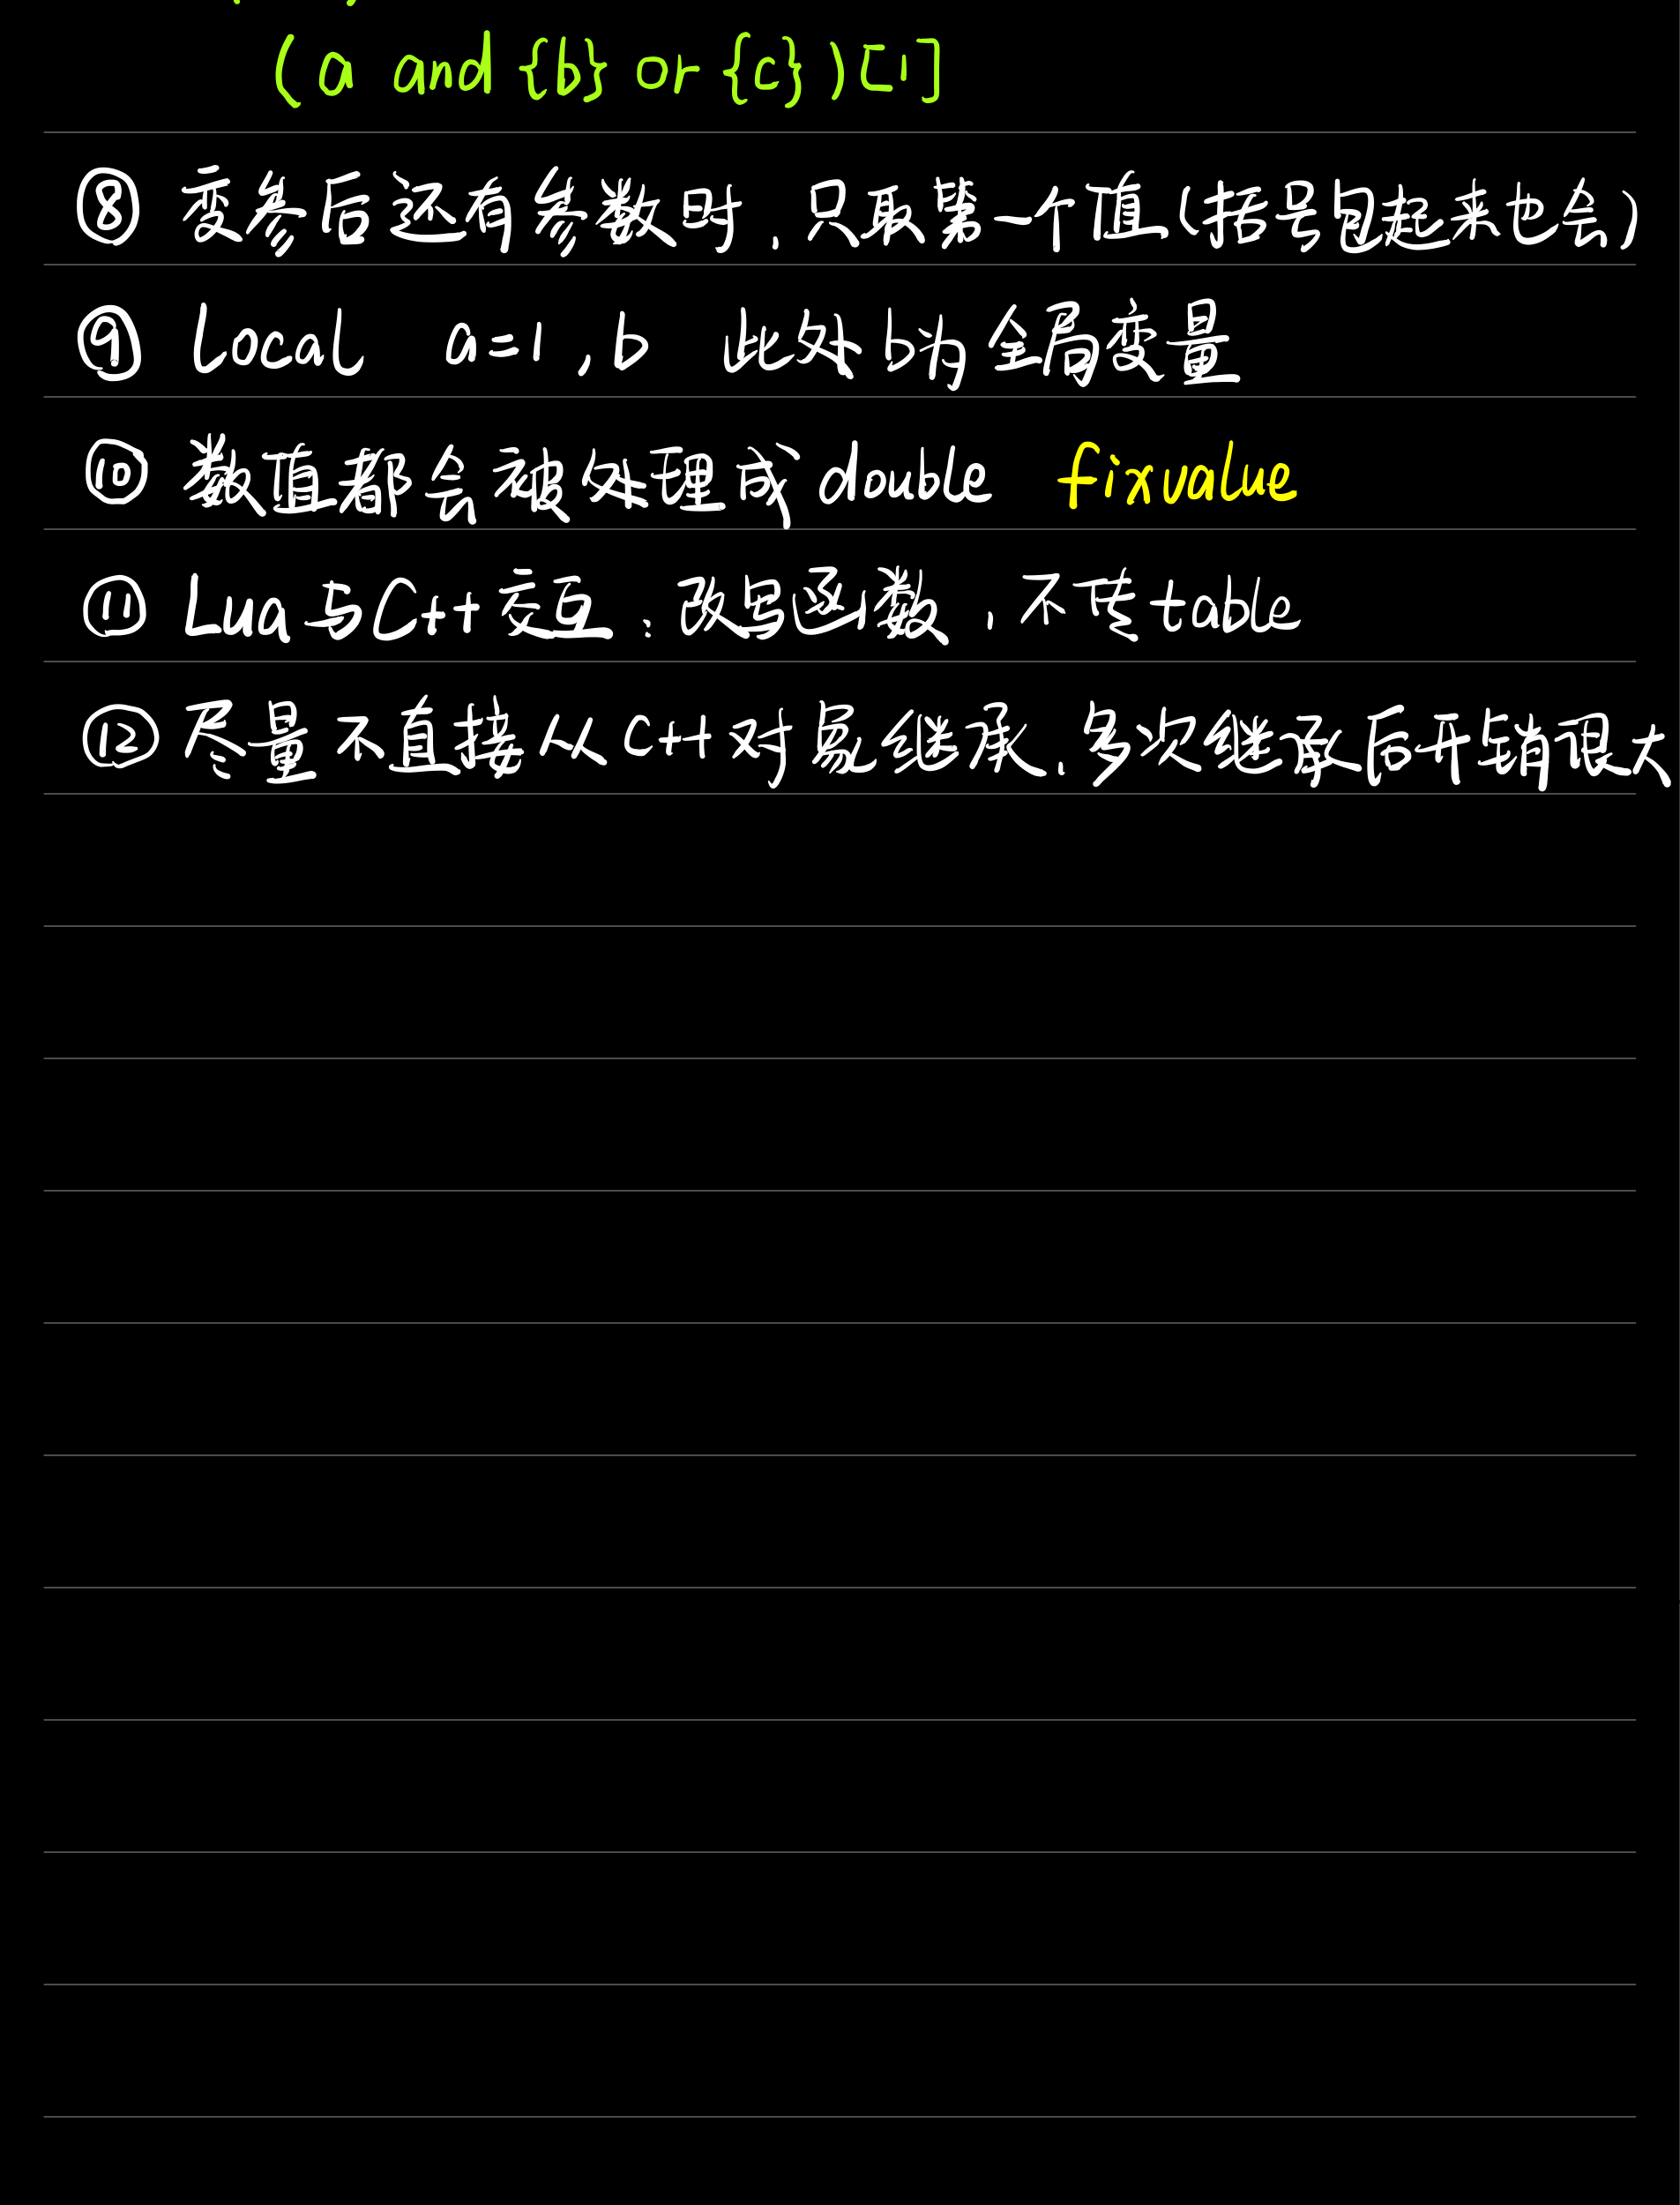 (a and {b} or {c})[1]
⑧ 变参后还有参数时,只取第一个值(括号包起来也会)
⑨ local a=1,b 此处b为全局变量
⑩ 数值都会被处理成double fixvalue
⑪ Lua与C++交互:改写函数,不传table
⑫ 尽量不直接从C++对象继承,多次继承后开销很大